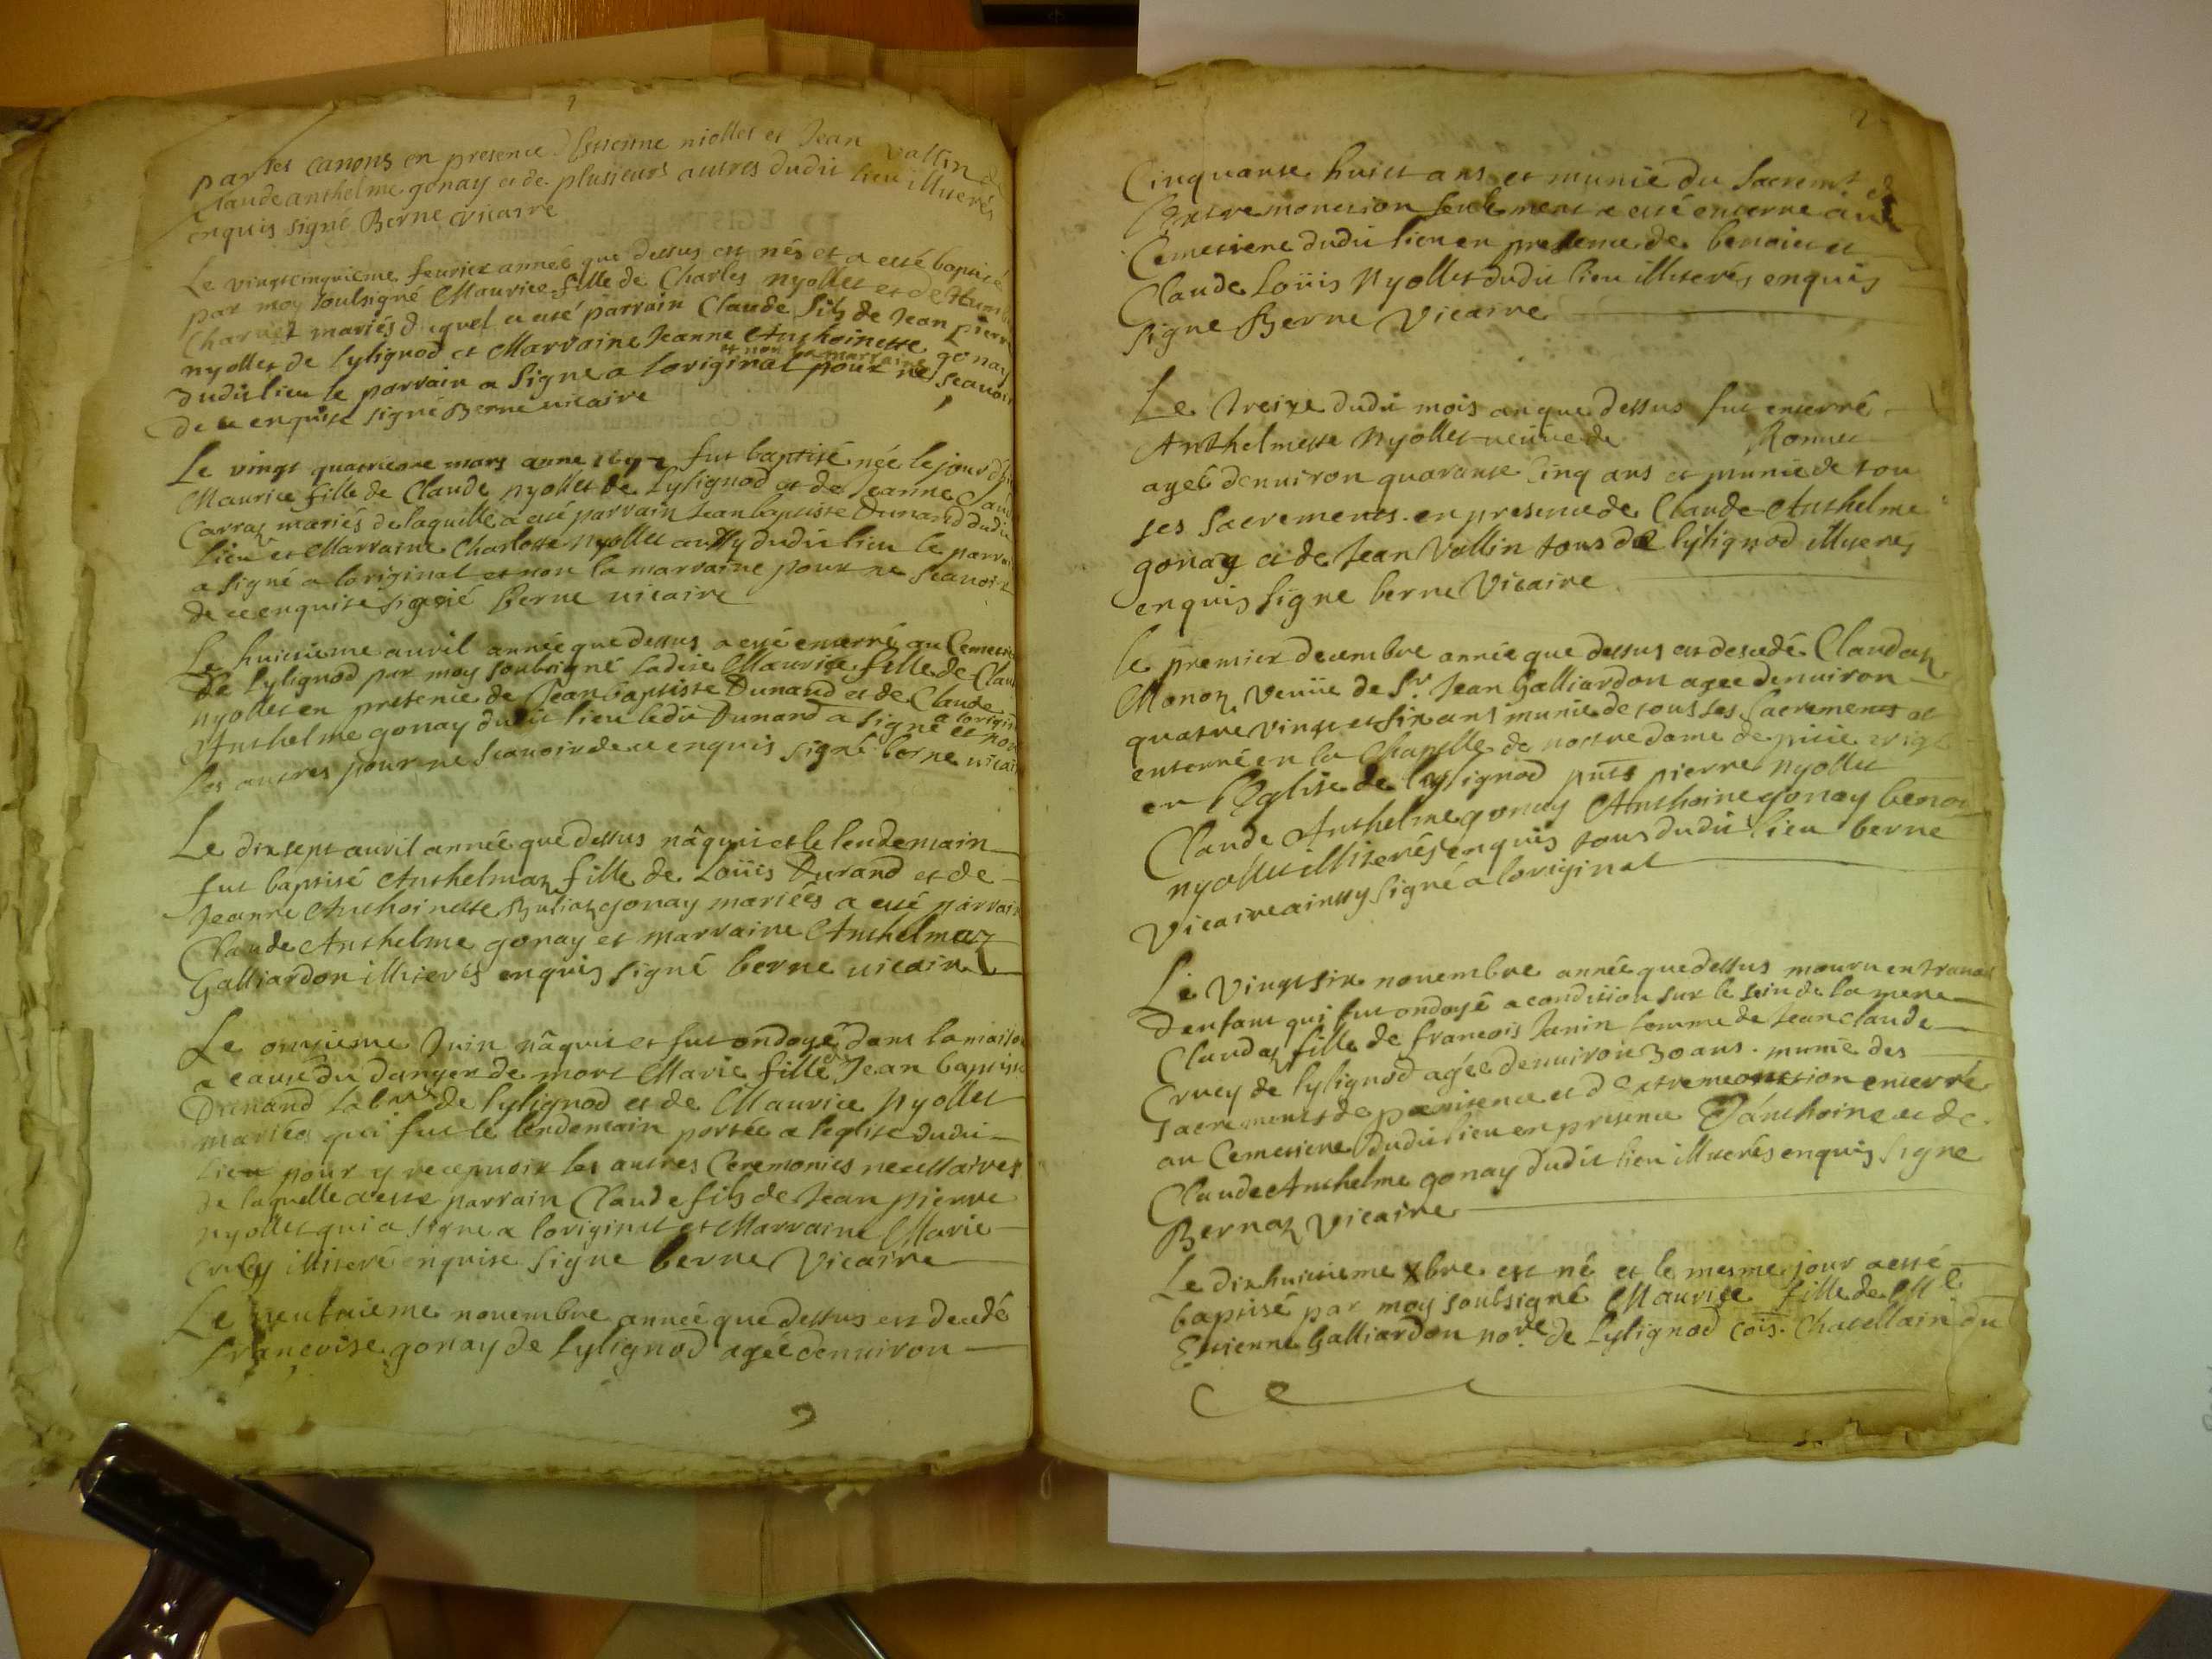 par les canons en presence d'Estienne niollet et Jean Vallin de
Claude anthelme gonay et de plusieurs autres dudit lieu illiterés
enquis signé Berne vicaire
Le vingtcinquieme feurier année que dessus est nés et a esté baptisé
par moy soubsigné Maurice fille de Charles nyollet et de
Charvet mariés duquel a esté parrain Claude fils de Jean pierre
nyollet de lylignod et Marraine Jeanne Anthoinette gonay
et non la marraine
dudit lieu le parrain a signe a loriginal pour ne scauoir
de ce enquise signé Berne uicaire
Le vingt quatrieme mars anne fut baptisé née le jour
Maurice fille de Claude nyollet de Lylignod et de Jeanne
Carraz mariés de laquelle a esté parrain Jean baptiste Dunand dudit
lieu et Marraine Charlotte nyollet aussy dudit lieu le parrain
a signé a loriginal et non la marraine pour ne scauoir
de ce enquise signé Berne uicaire
Le huictieme auril année que dessus a esté enterré au Cemet
de lylignod par moy soubsigné ladite Maurice fille de Clau
nyollet en presence de Jean baptiste Dunand et de Claude
a lorigin
Anthelme gonay dudit lieu ledit Dunand a signé et non
les autres pour ne scauoir de ce enquis signé berne uicair
Le dixsept auril année que dessus nâquit et le lendemain
fut baptisé Anthelmaz fille de Loüis Durand et de
Jeanne Anthoinette gonay mariées a esté parrain
Claude Anthelme gonay et marraine Anthelmaz
Galliardon illiterés enquis signé berne uicaire
Le onzieme Juin nâquit et fut ondoyé dans la maison
a cause du danger de mort Marie fille de Jean baptiste
Dunand lab.rs de lylignod et de Maurice nyollet
mariés qui fut le lendemain portée a leglise dudit
lieu pour y recepuoir les autres Ceremonies necessaires
de laquelle a esté parrain Claude fils de Jean pierre
nyollet qui a signe a loriginal et Marraine Marie
Cruey illiteré enquise signe berne Vicaire
Le neufuieme nouembre année que dessus est decedé
francoise gonay de lylignod agée denuiron
2
Cinquante huict ans et munie du Sacrem.t de
lextremonction seulement a esté enterre au
Cemetiere dudit lieu en presence de benoict et
Claude Loüis nyollet dudit lieu illiterés enquis
signe Berne Vicaire
Le treize dudit mois an que dessus fut enterré
Anthelmette nyollet ueuue de Ronnet
ageé denuiron quarante cinq ans et munie de tou
ses sacrements en presence de Claude Anthelme
gonay et de Jean Vallin tous de lylignod illiteres
enquis signe berne Vicaire
le premier decembre année que dessus est decedé Claudaz
Monoz veuüe de S.r Jean Galliardon agee denuiron
quatre vingt et six ans munie de tous ses sacrements et
enterré en la Chapelle de nostre dame de pitié erigé
en l'Eglise de lylignod pnts pierre nyollet
Claude Anthelme gonay Anthoine gonay benoi
nyollet illiterés enquis tous dudit lieu berne
Vicaire ainsy signé a loriginal
Le vingt six nouembre année que dessus mouru en trauail
denfant qui fut ondoyé a condition sur le sein de la mere
Claudaz fille de francois Janin femme de Jean claude
Cruey de lylignod agée denuiron 30 ans. munie des
sacrements de poenitence et d'extremeonction enterré
au Cemetiere dudit lieu en presence d'anthoine et de
Claude Anthelme gonay dudit lieu illiterés enquis signe
Bernaz Vicaire
Le dixhuictieme Xbre est né et le mesme jour a esté
baptisé par moy soubsigné Maurise fille de M.e
Estienne Galliardon no.re de Lylignod Chatellain du